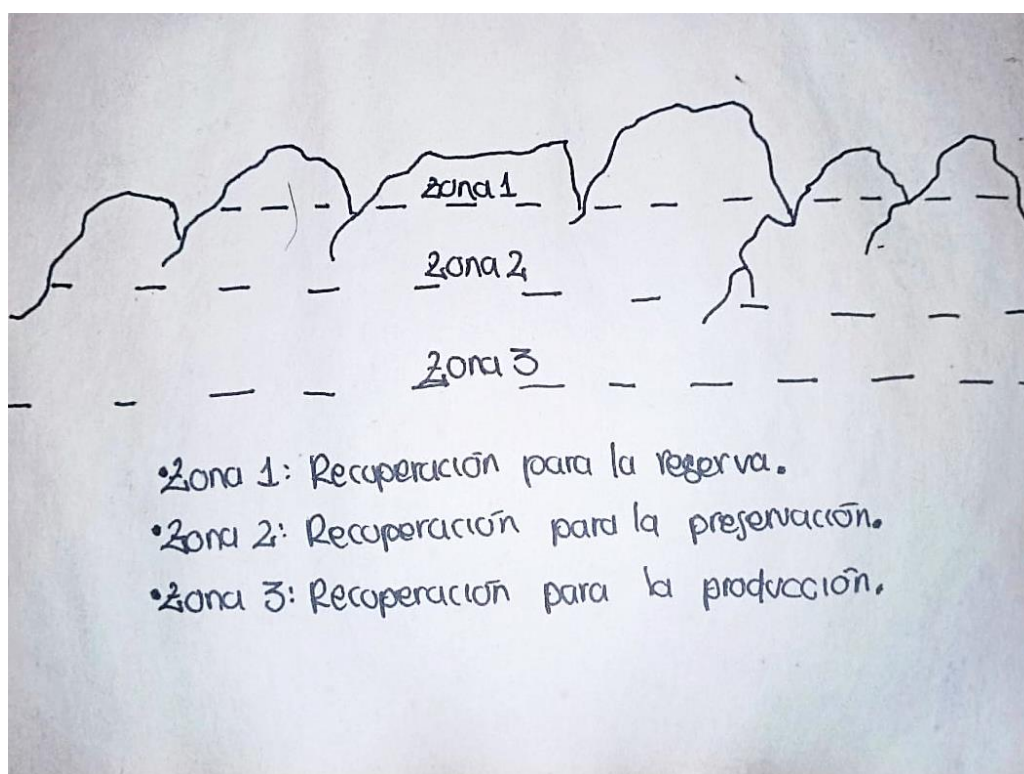 Zona 1
Zona 2
Zona 3
•Zona 1: Recuperación para la reserva.
•Zona 2: Recuperación para la preservación.
•Zona 3: Recuperación para la producción.